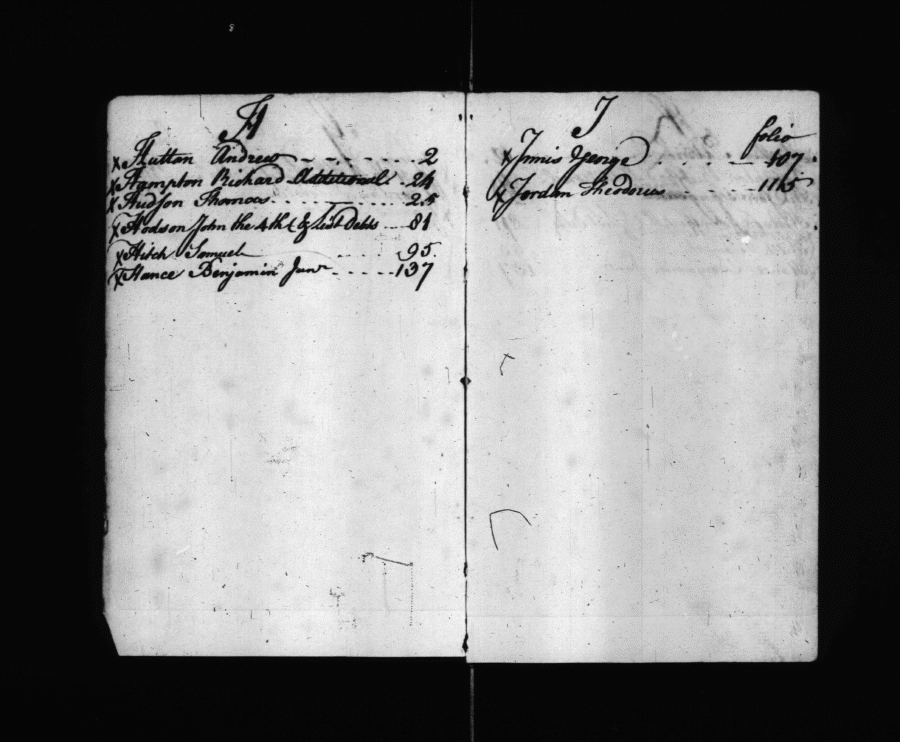 H
x Hutton Andrew - - - - - - - - 2
x Hampton Richard Additional . . 24
x Hudson Thomas . . . . . . . . . 25
x Hodson John the 4th & list Debts . . . 81
x Hitch Samuel . . . . 95
x Hance Benjamin Junr . . . . . 137
J
folio
x Innis George . . . . . 107
x Jordan Theodorus . . . . 115